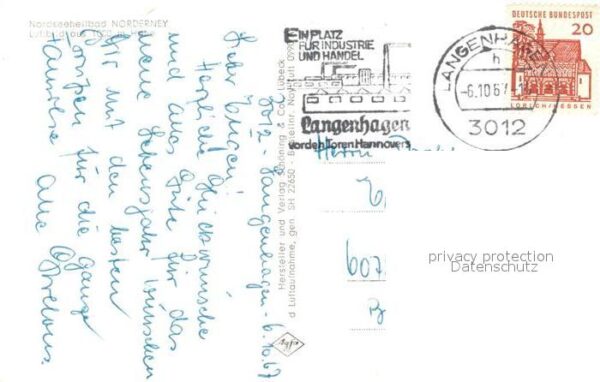 Nordseeheilbad NORDERNEY
Luftbild aus 1000 m Höhe
3012 Langenhagen, 6.10.67
Lieber Erwin!
Herzliche Glückwünsche
und alles Gute für das
neue Lebensjahr wünschen
wir mit den besten
Grüßen für die ganze
Familie
alle
Hersteller und Verlag Schöning & Co., Lübeck
d. Luftaufnahme, gen. SH 22650 - Bestellnr. Nord
Agfa
EIN PLATZ
FÜR INDUSTRIE
UND HANDEL
Langenhagen
vor den Toren Hannovers
LANGENHAGEN
h
-6.10.67
3012
DEUTSCHE BUNDESPOST
20
LORSCH/HESSEN
Herrn
E
607
B
privacy protection
Datenschutz